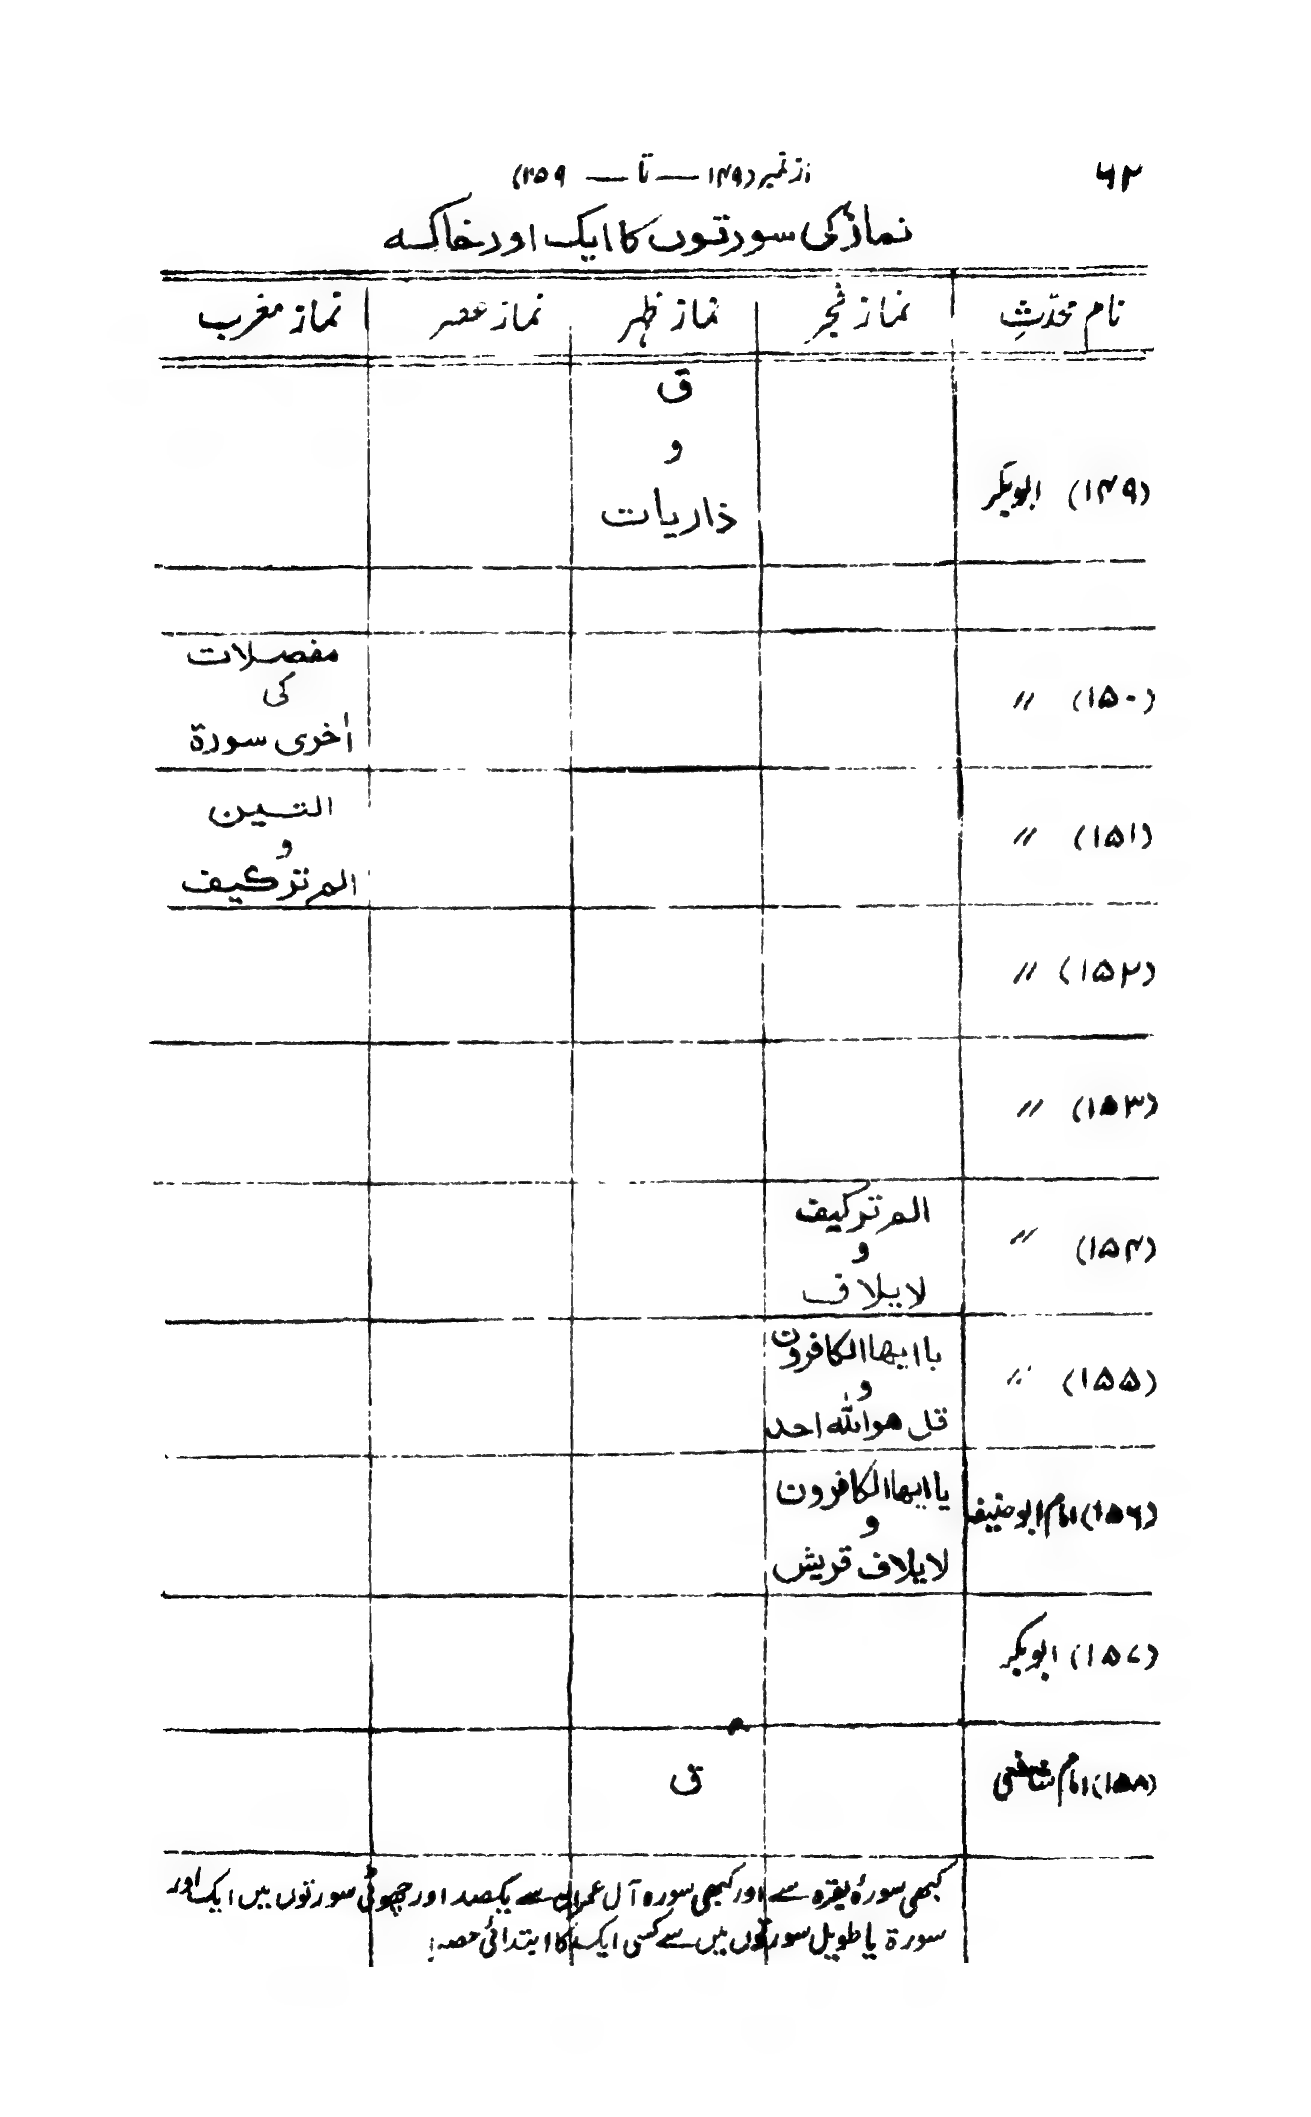 ۶۲
از نمبر (۱۴۹ — تا — ۲۵۹)
نماز کی سورتوں کا ایک اور خاکہ
نام محدّثِ نماز فجر نماز ظہر نماز عصر نماز مغرب
(۱۴۹) ابوبکر ق
و
ذاریات
(۱۵۰)〃 مفصلات
کی
اٰخری سورۃ
(۱۵۱) 〃 التین
و
الم ترکیف
(۱۵۲) 〃
(۱۵۳) 〃
(۱۵۴) 〃 الم ترکیف
و
لایلاف
(۱۵۵) 〃 یا ایھا الکافرون
و
قل ھو اللہ احد
(۱۵۶) امام ابو حنیفہ یا ایھا الکافرون
و
لایلاف قریش
(۱۵۷) ابوبکر
(۱۵۸) امام شافعی ق
کبھی سورۂ بقرہ سے اور کبھی سورہ آل عمران سے یکصد اور چھوٹی سورتوں میں ایک اور
سورۃ یا طویل سورتوں میں سے کسی ایک کا ابتدائی حصہ!